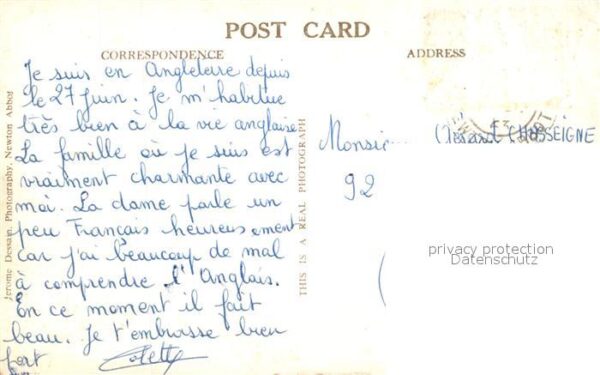 POST CARD
CORRESPONDENCE
ADDRESS
Je suis en Angleterre depuis
le 27 juin. Je m'habitue
très bien à la vie anglaise
La famille où je suis est
vraiment charmante avec
moi. La dame parle un
peu Français heureusement
car j'ai beaucoup de mal
à comprendre l'Anglais.
En ce moment il fait
beau. Je t'embrasse bien
fort
Colette
Jerome Dessain, Photography, Newton Abbot
THIS IS A REAL PHOTOGRAPH
Monsie
CHOSSEIGNE
92
privacy protection
Datenschutz